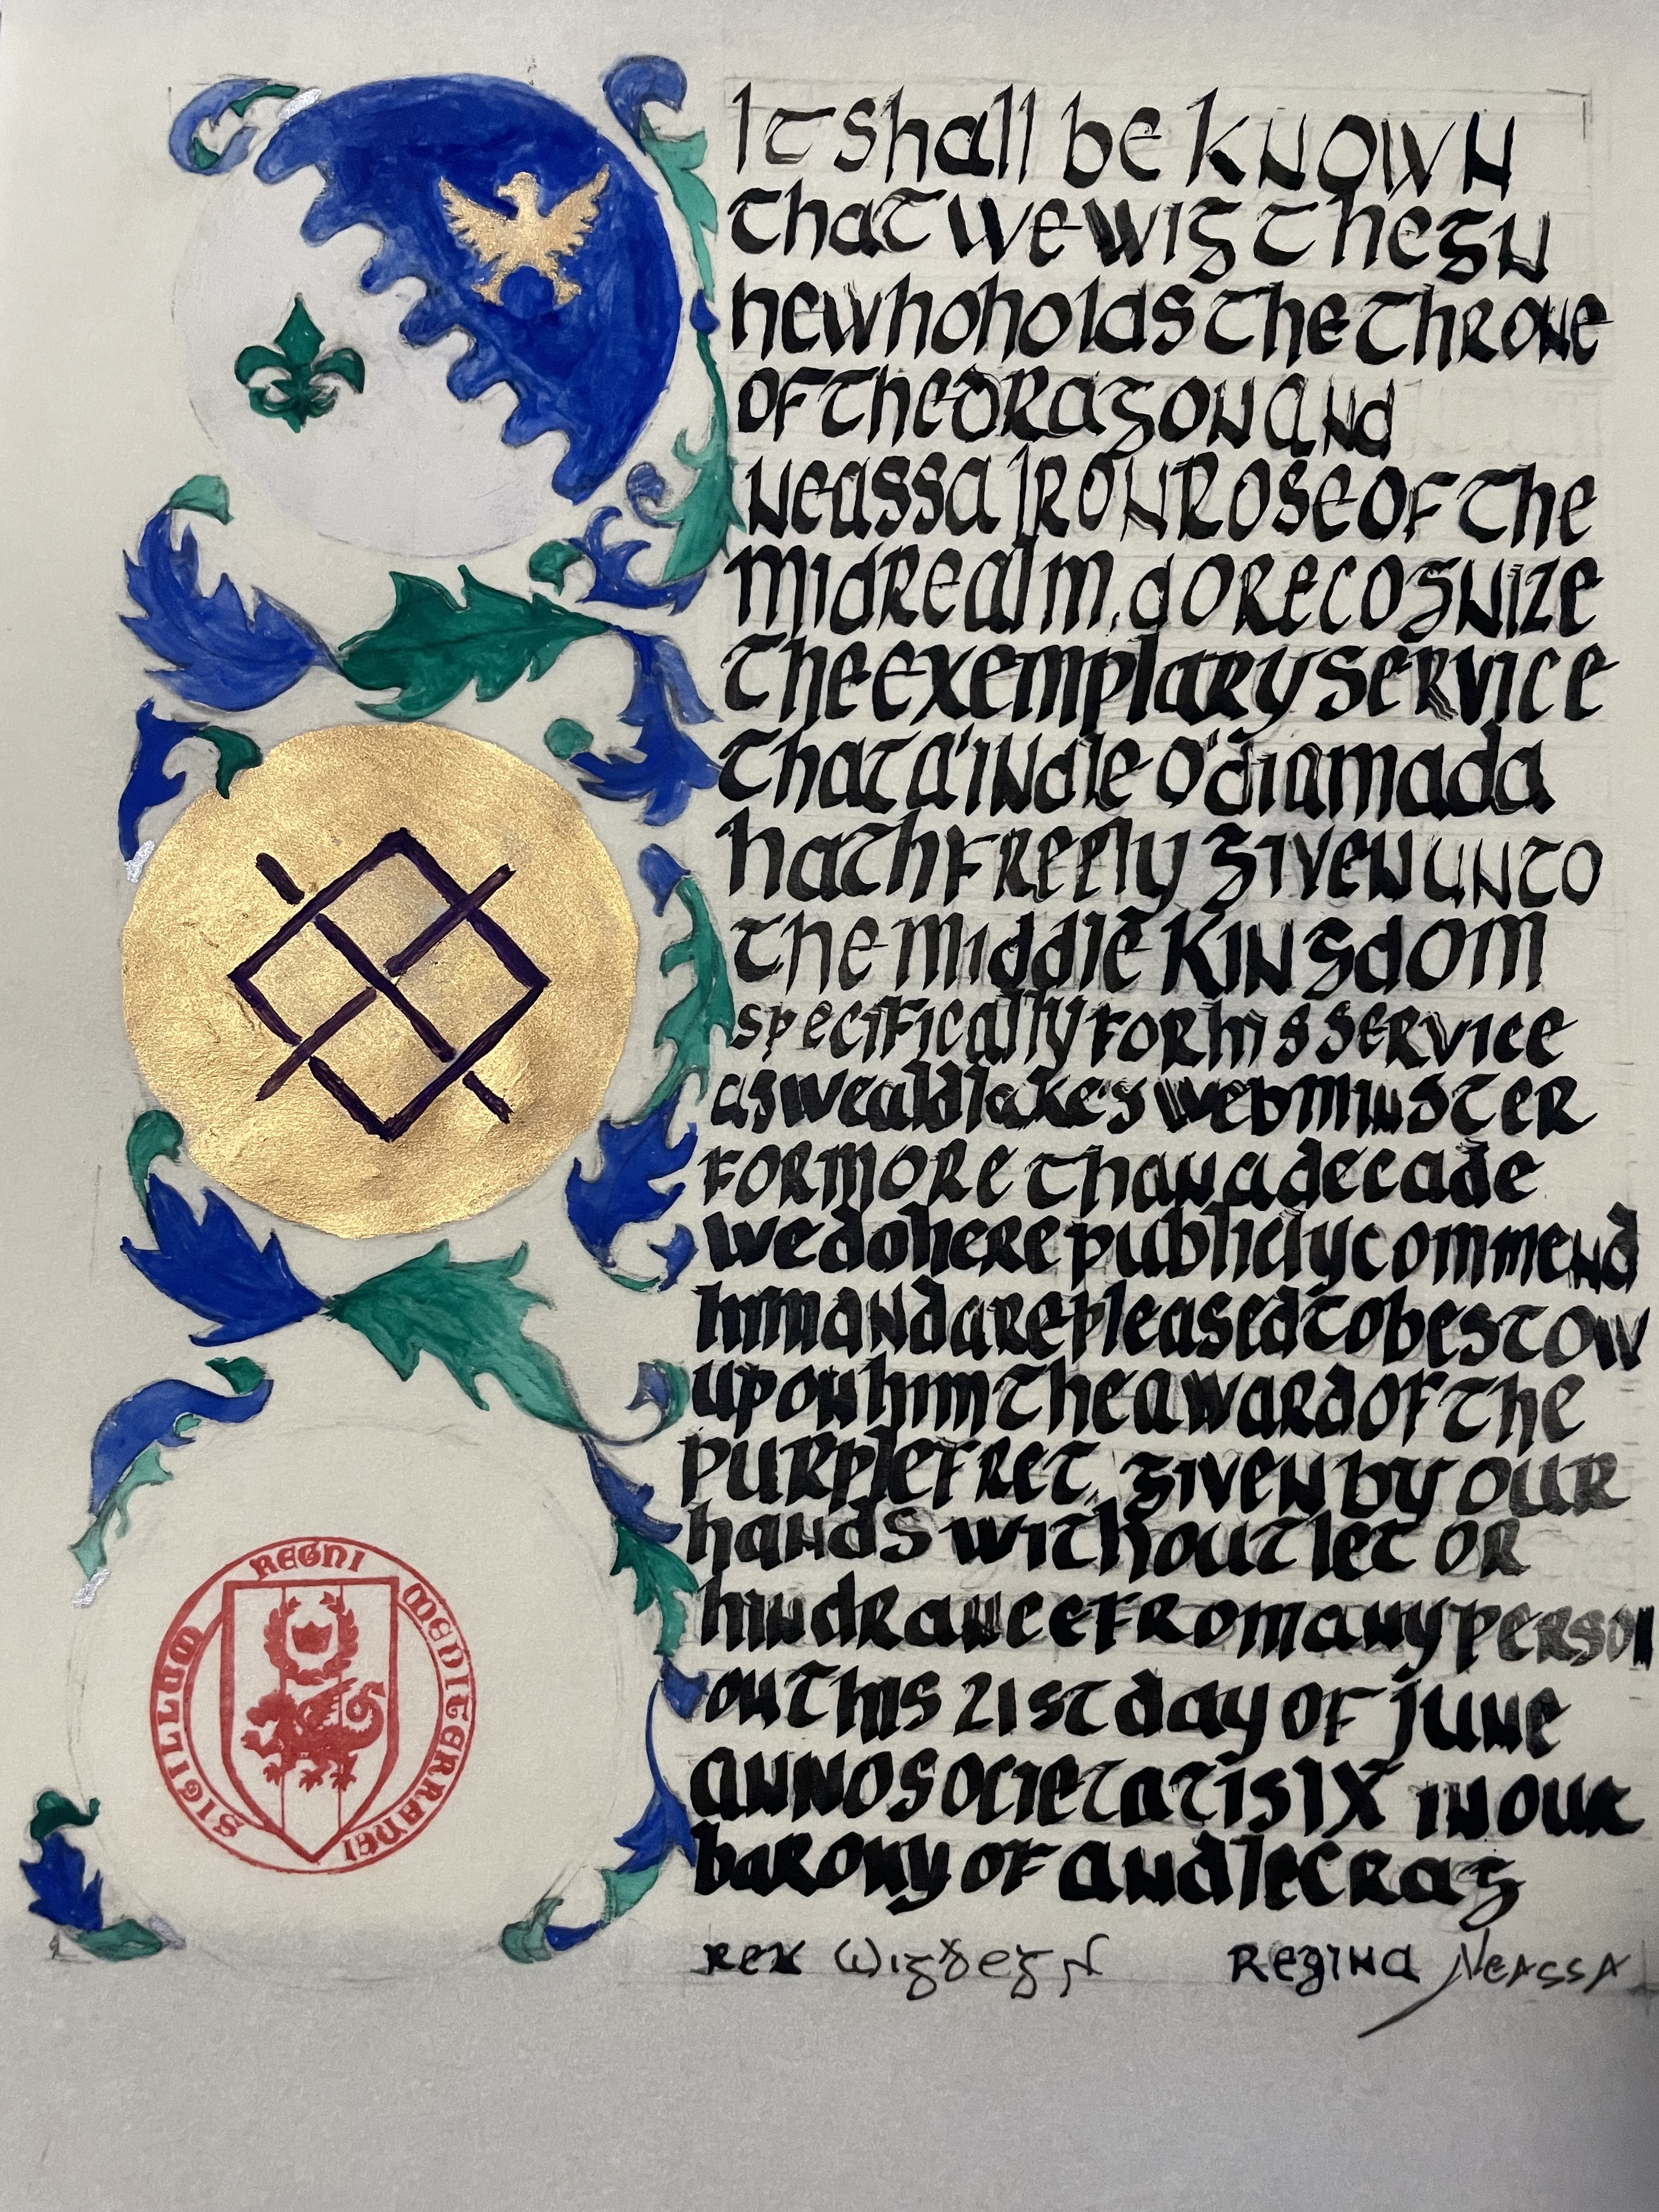 It shall be known
that we Wigthegn
ne who holds the throne
of the dragon and
Neassa Ironrose of the
Midrealm, do recognize
the exemplary service
that A'indle O'diamada
hath freely given unto
the Middle Kingdom
specifically for his service
as Wealdlake's webminister
for more than a decade
we do here publicly commend
him and are pleased to bestow
upon him the award of the
purple fret. Given by our
hands without let or
hindrance from any person
on this 21st day of June
anno societatis IX in our
barony of Andelcrag
Rex Wigþegn Regina Neassa
SIGILLUM REGNI MEDITERRANEI